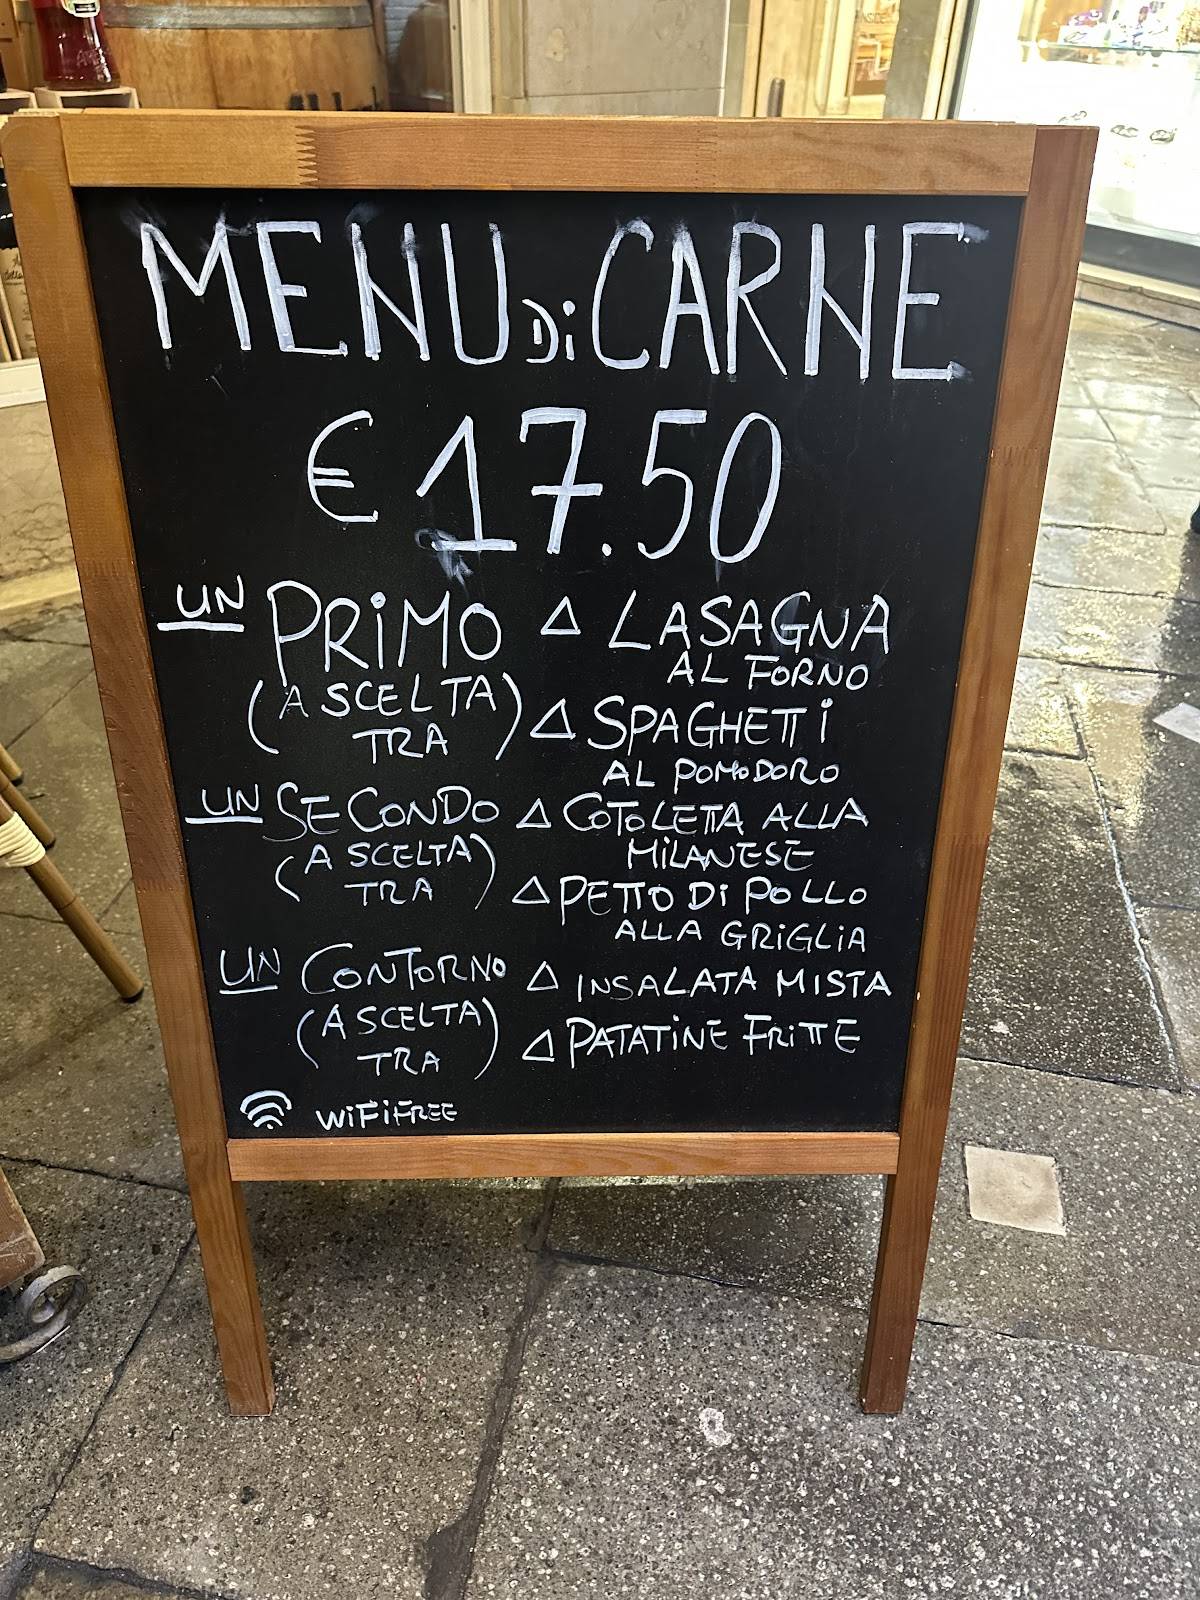 MENU Di CARNE
€ 17.50
UN PRiMO △ LASAGNA
AL FORNO
(A SCELTA TRA)
△ SPAGHETTi
AL POMODORO
UN SECONDO △ COTOLETTA ALLA
MiLANESE
(A SCELTA TRA)
△ PETTO Di POLLO
ALLA GRiGLiA
UN CONTORNO △ INSALATA MISTA
(A SCELTA TRA)
△ PATATiNE FRiTTE
WiFi FREE